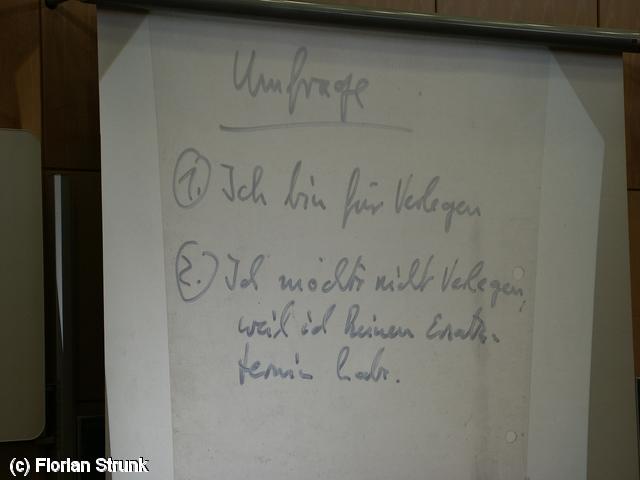 Umfrage
1. Ich bin für Verlegen
2. Ich möchte nicht Verlegen,
weil ich keinen Ersatz-
termin habe.
(c) Florian Strunk